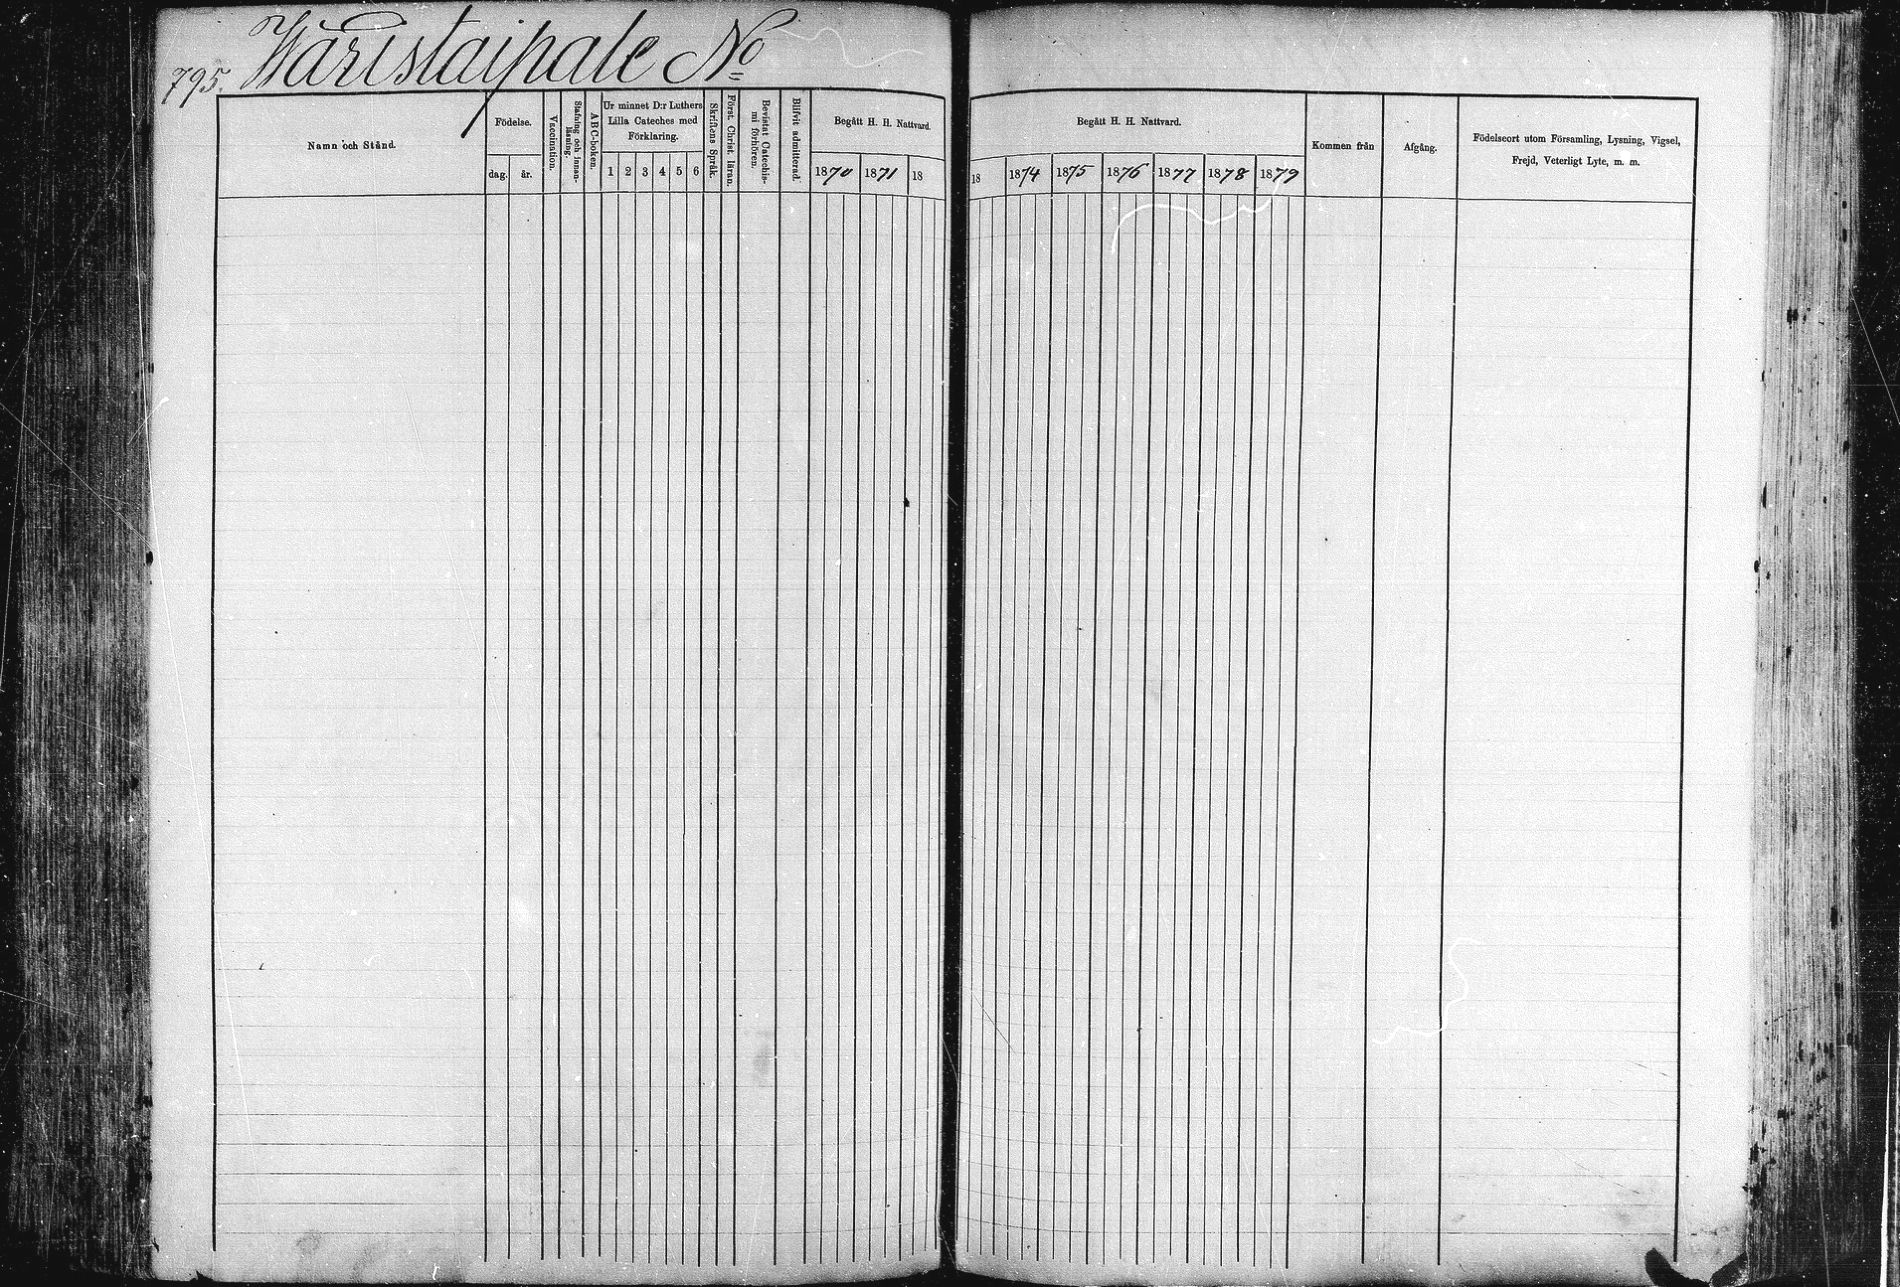 795. Wäristaipale No
Namn och Stånd.
Födelse.
dag. år.
Vaccination.
Stafning och innan-
läsning.
ABC-boken.
Ur minnet D:r Luthers
Lilla Cateches med
Förklaring.
1 2 3 4 5 6
Skriftens Språk.
Först. Christ. läran.
Bevistat Catechis-
mi förhören.
Blifvit admitterad.
Begått H. H. Nattvard.
1870 1871 18
Begått H. H. Nattvard.
18 1874 1875 1876 1877 1878 1879
Kommen från
Afgång.
Födelseort utom Församling, Lysning, Vigsel,
Frejd, Veterligt Lyte, m. m.